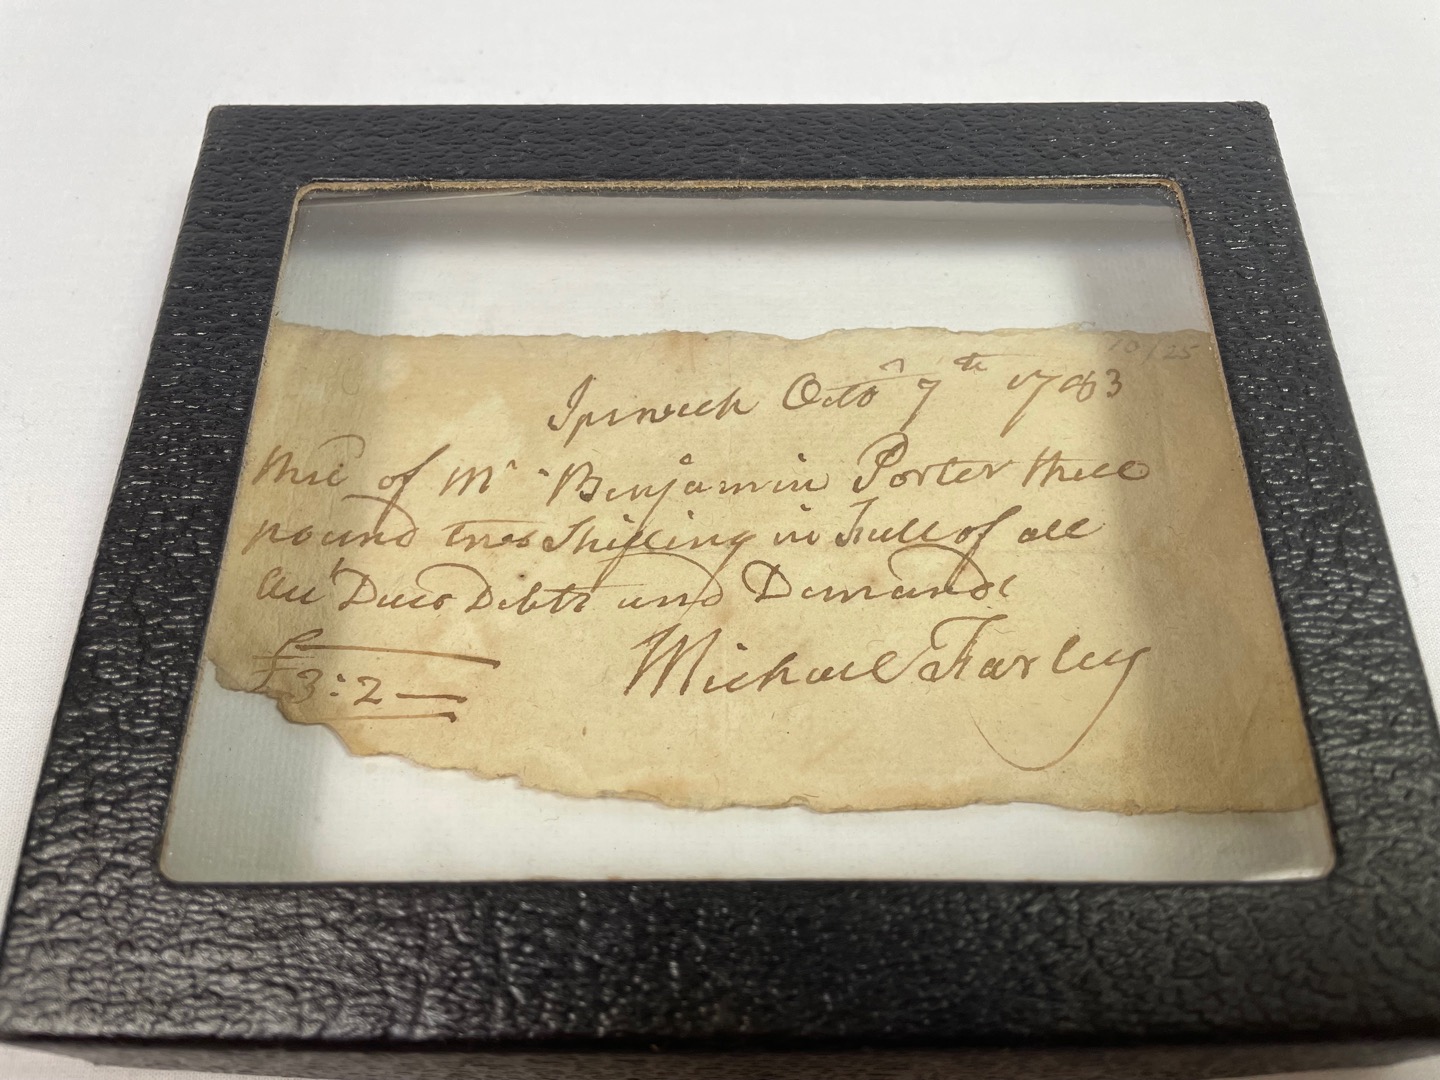 10/25
Ipswich Octor 7th 1783
of Mr Benjamin Porter three
pound two Shilling in Full of all
Dues Debts and Demands
£3:2
Michael Farley